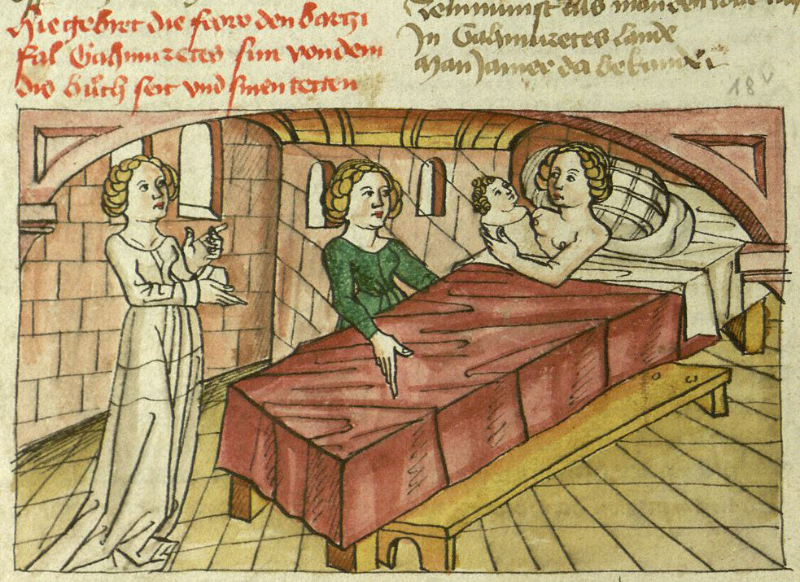 Hie gebirt die frow den bartzi
fal Gahmuretes sun von dem
dis bůch seit vnd sinen tetten
als man den
In Gahmuretes lande
Man Jamer da bekande
18v